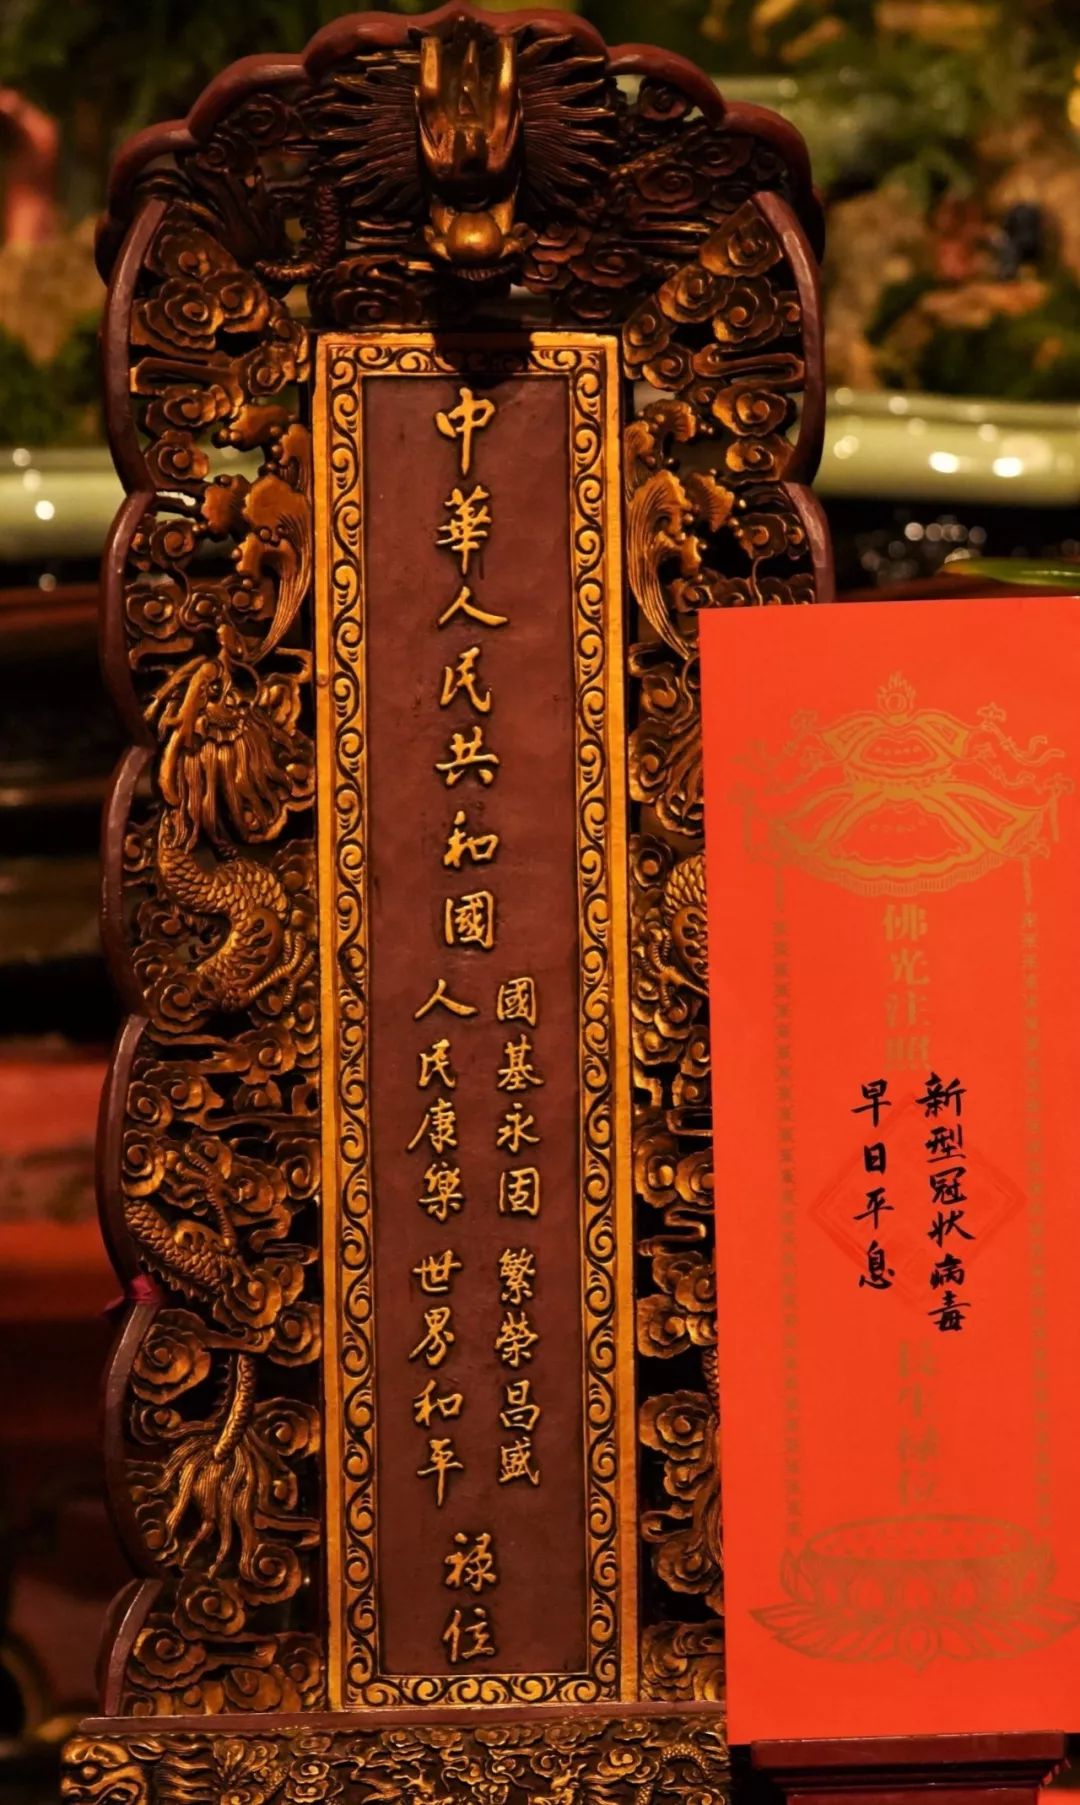 中華人民共和國
國基永固 繁榮昌盛
人民康樂 世界和平
禄位
佛光注照
新型冠状病毒
早日平息
長生禄位